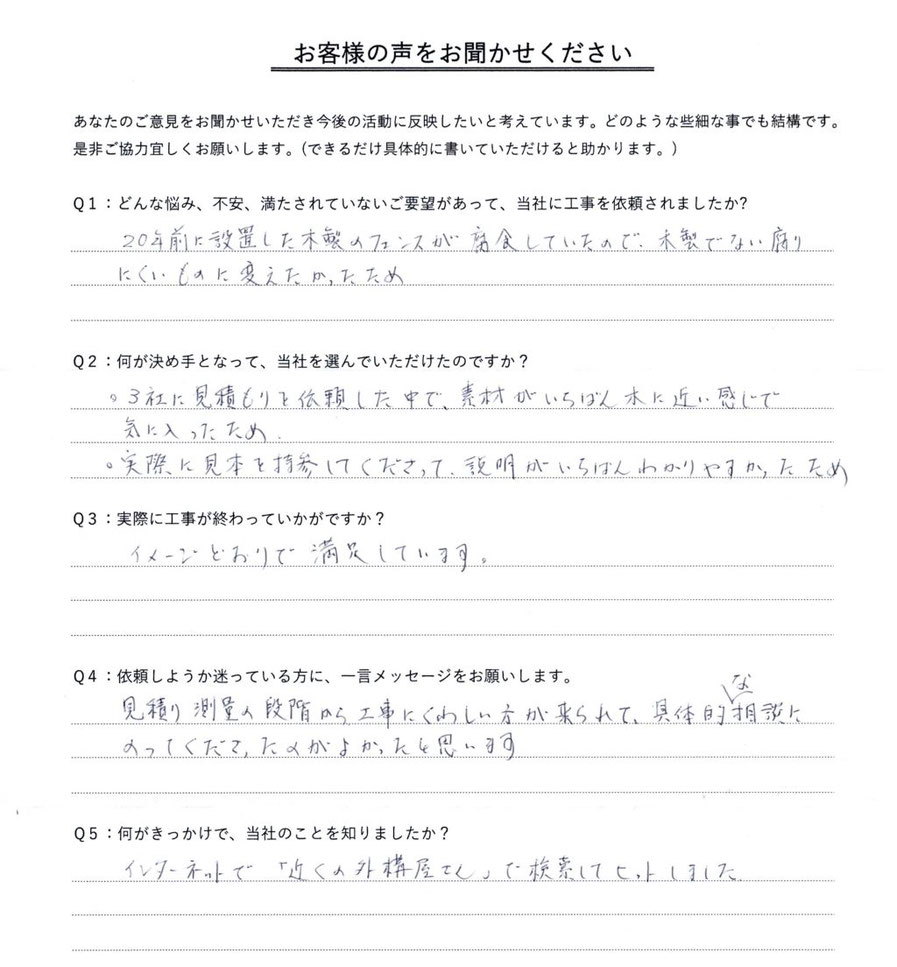 お客様の声をお聞かせください
あなたのご意見をお聞かせいただき今後の活動に反映したいと考えています。どのような些細な事でも結構です。
是非ご協力宜しくお願いします。(できるだけ具体的に書いていただけると助かります。)
Q1：どんな悩み、不安、満たされていないご要望があって、当社に工事を依頼されましたか?
20年前に設置した木製のフェンスが腐食していたので、木製でない腐り
にくいものに変えたかったため
Q2：何が決め手となって、当社を選んでいただけたのですか？
。3社に見積もりを依頼した中で、素材がいちばん木に近い感じで
気に入ったため.
。実際に見本を持参してくださって、説明がいちばんわかりやすかったため
Q3：実際に工事が終わっていかがですか？
イメージどおりで満足しています。
Q4：依頼しようか迷っている方に、一言メッセージをお願いします。
見積り測量の段階から工事にくわしい方が来られて、具体的な相談に
のってくださったのがよかったと思います
Q5：何がきっかけで、当社のことを知りましたか？
インターネットで「近くの外構屋さん」で検索してヒットしました